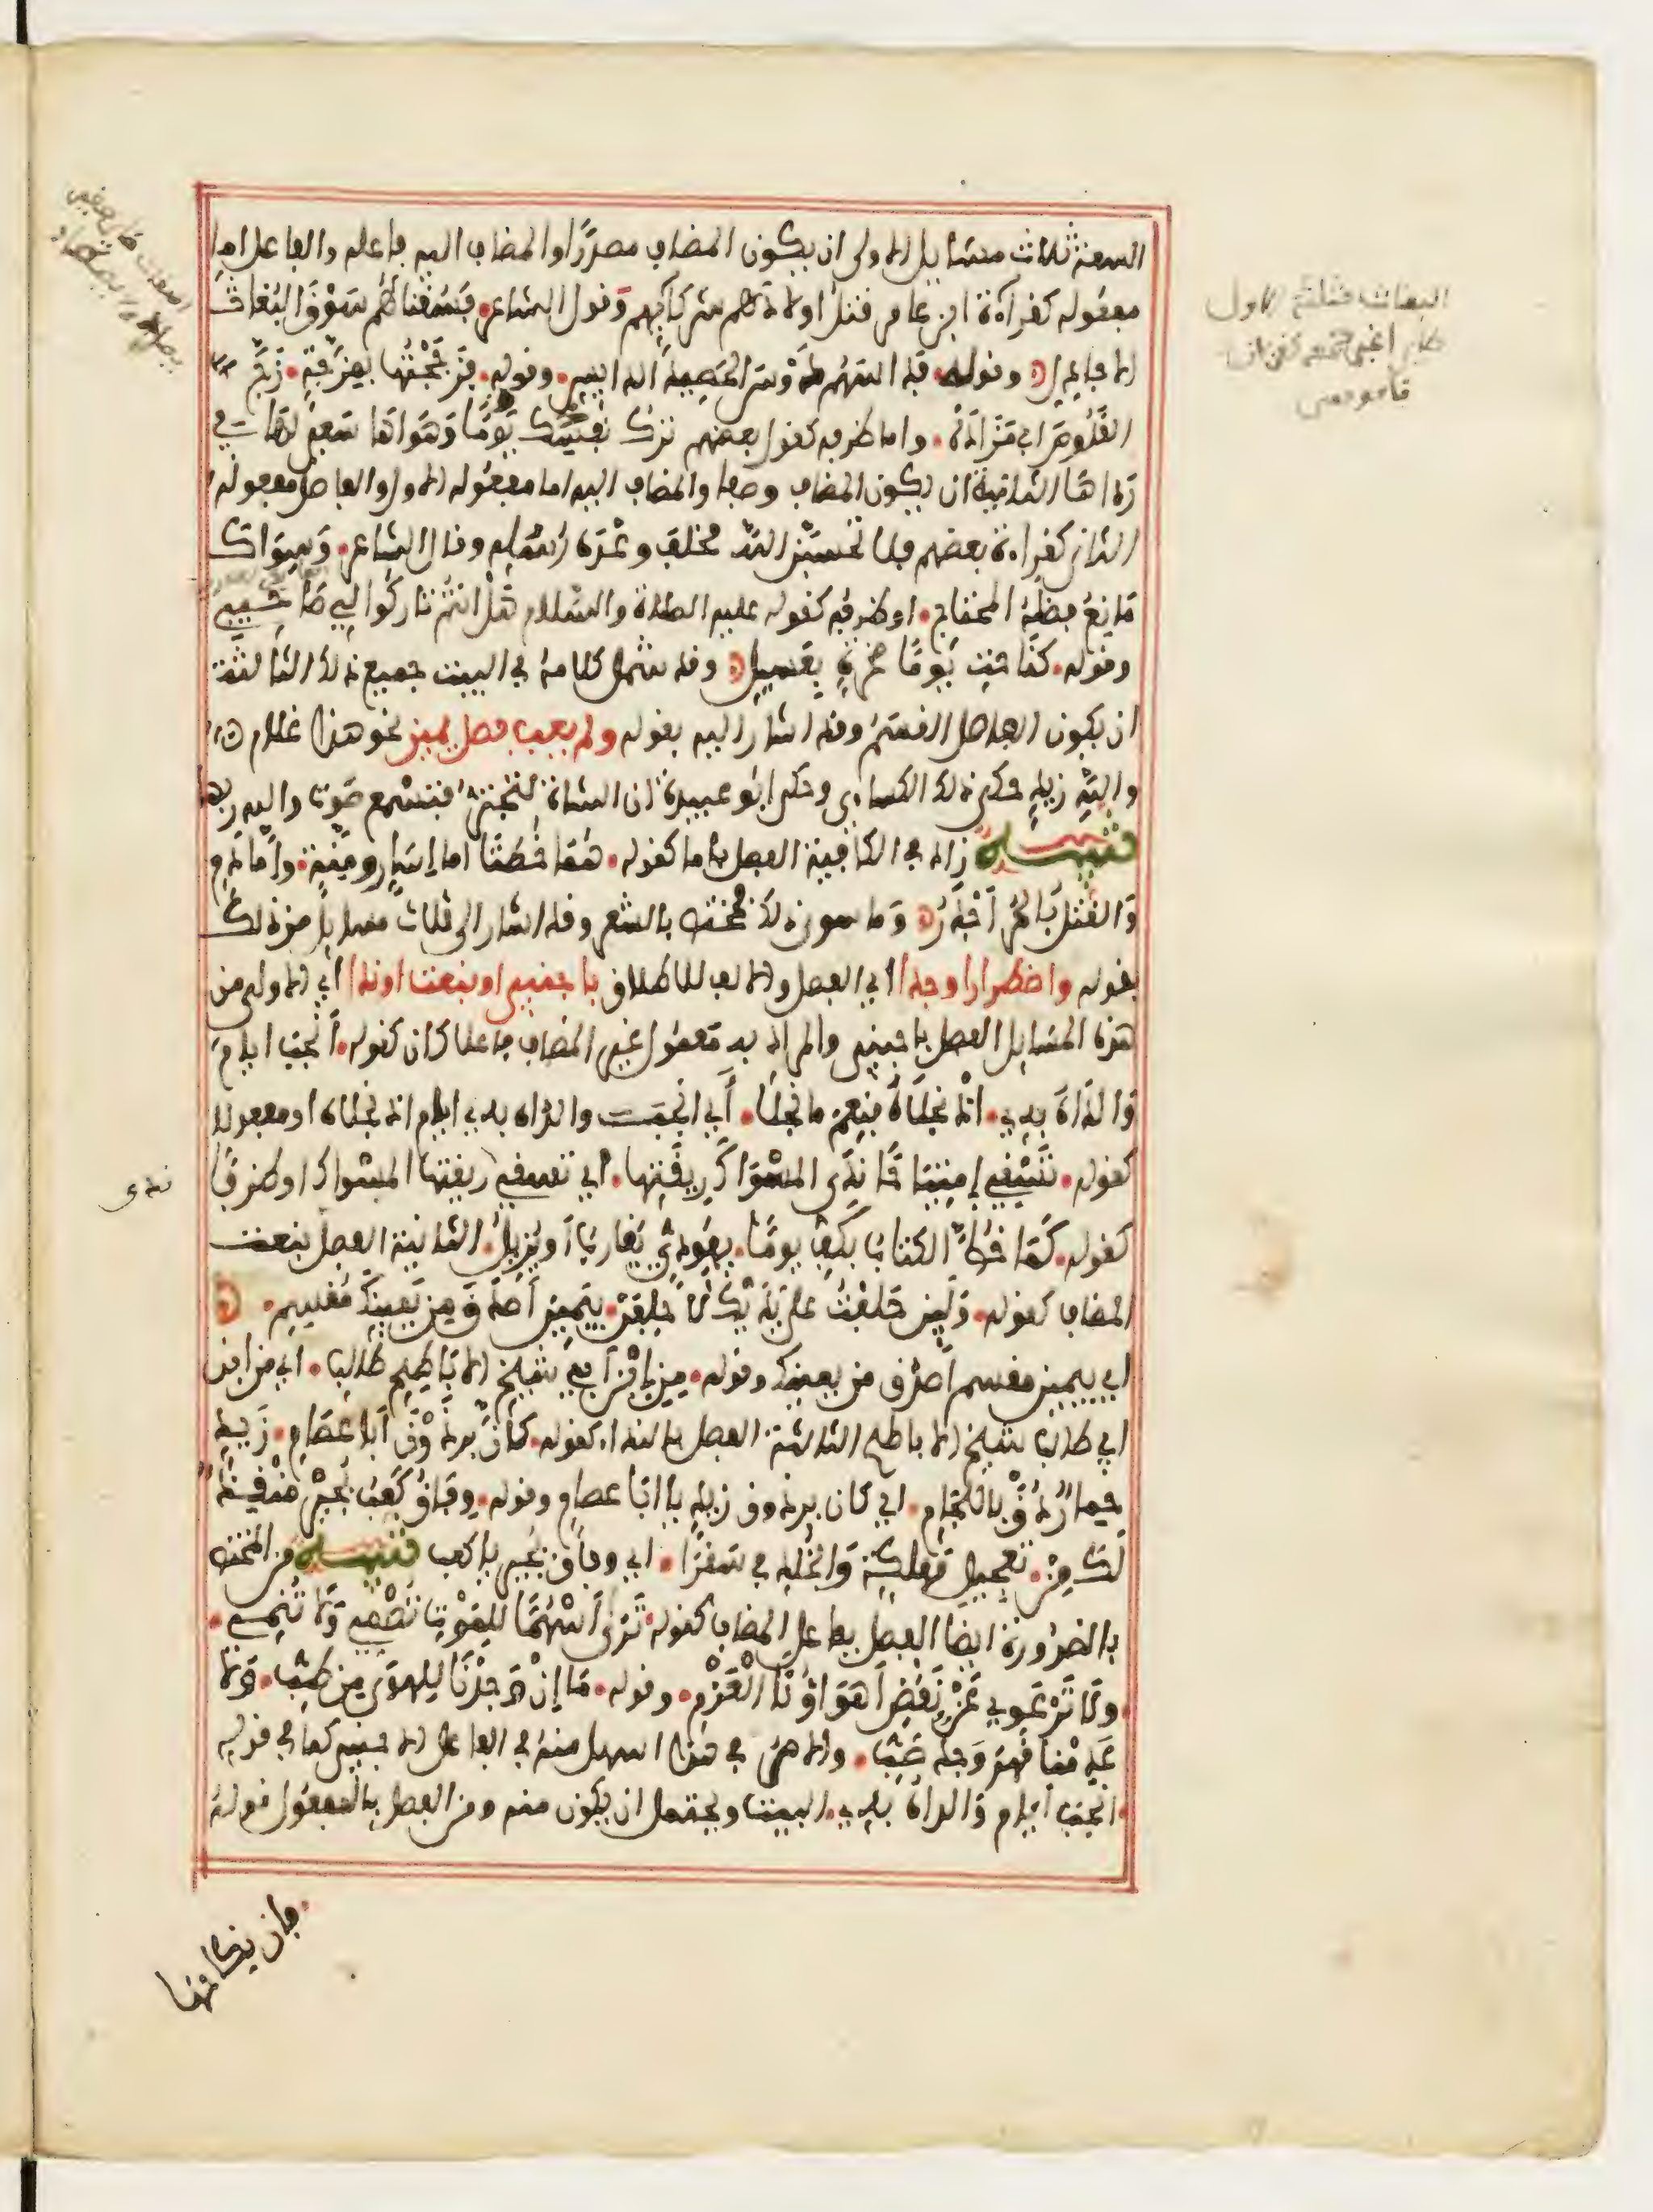 السعة ثلاث مسايل الاولى ان يكون المضاف مصدرا والمضاف اليه فاعله والفاصل اما
مفعوله كقراءة ابن عامر قتل اولادهم شركايهم وقول الشاعر فسقناهم سوق البغاث
الاجادل وقوله فداستهم دوس الحصيد الدايس وقوله فزججتها بمزجة زج
القلوص ابي مزاده واما ظرفه كقول بعضهم ترك يوما نفسك وهواها سعي لها في
رداها الثانية ان يكون المضاف وصفا والمضاف اليه اما مفعوله الاول والفاصل مفعوله
الثاني كقراءة بعضهم فلا تحسبن الله مخلف وعده رسله وقال الشاعر وسواك
مانع فضله المحتاج اوظرفه كقوله عليه الصلاة والسلام هل انتم تاركوا لي صاحبي
وقوله كناحت يوما صخرة بعسيل وقد شمل كلامه في البيت جميع ذلك الثالثة
ان يكون الفاصل القسم وقد اشار اليه بقوله ولم يعب فصل يمين نحو هذا غلام
والله زيد حكى ذلك الكساءي وحكى ابو عبيدة ان الشاة لتجتر فتسمع صوت والله ربها
تنبيه زاد في الكافية الفصل باما كقوله هما خطتا اما إسار ومنة واما دم
والقتل بالحر اجدر وما سوى ذلك مختص بالشعر وقد اشار الى ثلاث مسايل من ذلك
بقوله واضطرارا وجدا اي الفصل والالف للاطلاق باجنبي او بنعت او ندا اي الاولى من
هذه المسايل الفصل باجنبي والمراد به معمول غير المضاف فاعلا كان كقوله انجب ايام
والداه به اذ نجلاه فنعم ما نجلا اي انجب والداه به ايام اذ نجلاه او مفعولا
كقوله تسقي إمتياحا ندى المسواك ريقتها اي تسقي ريقتها المسواك او ظرفا
كقوله كما خط الكتاب بكف يوما يهودي يقارب او يزيل الثانية الفصل بنعت
المضاف كقوله ولين حلفت على يديك لاحلفن بيمين أصدق من يمينك مقسم
اي بيمين مقسم اصدق من يمينك وقوله من ابن ابي شيخ الاباطح طالب اي من ابن
ابي طالب شيخ الاباطح الثالثة الفصل بالندا كقوله كان برذون ابا عصام زيد
حمار دق باللجام اي كان برذون زيد يا ابا عصام وقوله وفاق كعب بجير منقذ
لك من تعجيل تهلكة والخلد في سقرا اي وفاق بجير يا كعب تنبيه من المختص
بالضرورة ايضا الفصل بفاعل المضاف كقوله ترى أسهما للموت تصمي ولا تنمي
ولا ترعوي عن نقض اهواؤنا العزم وقوله ما إن وجدنا للهوى من طب ولا
عدمنا قهر وجد صب والامر في هذا اسهل منه في الفاعل الاجنبي كما في قوله
انجب ايام والداه به البيت ويحتمل ان يكون منه ومن الفصل بالمفعول قوله
فان نكاحها
البغاث مثلث الاول
ندى